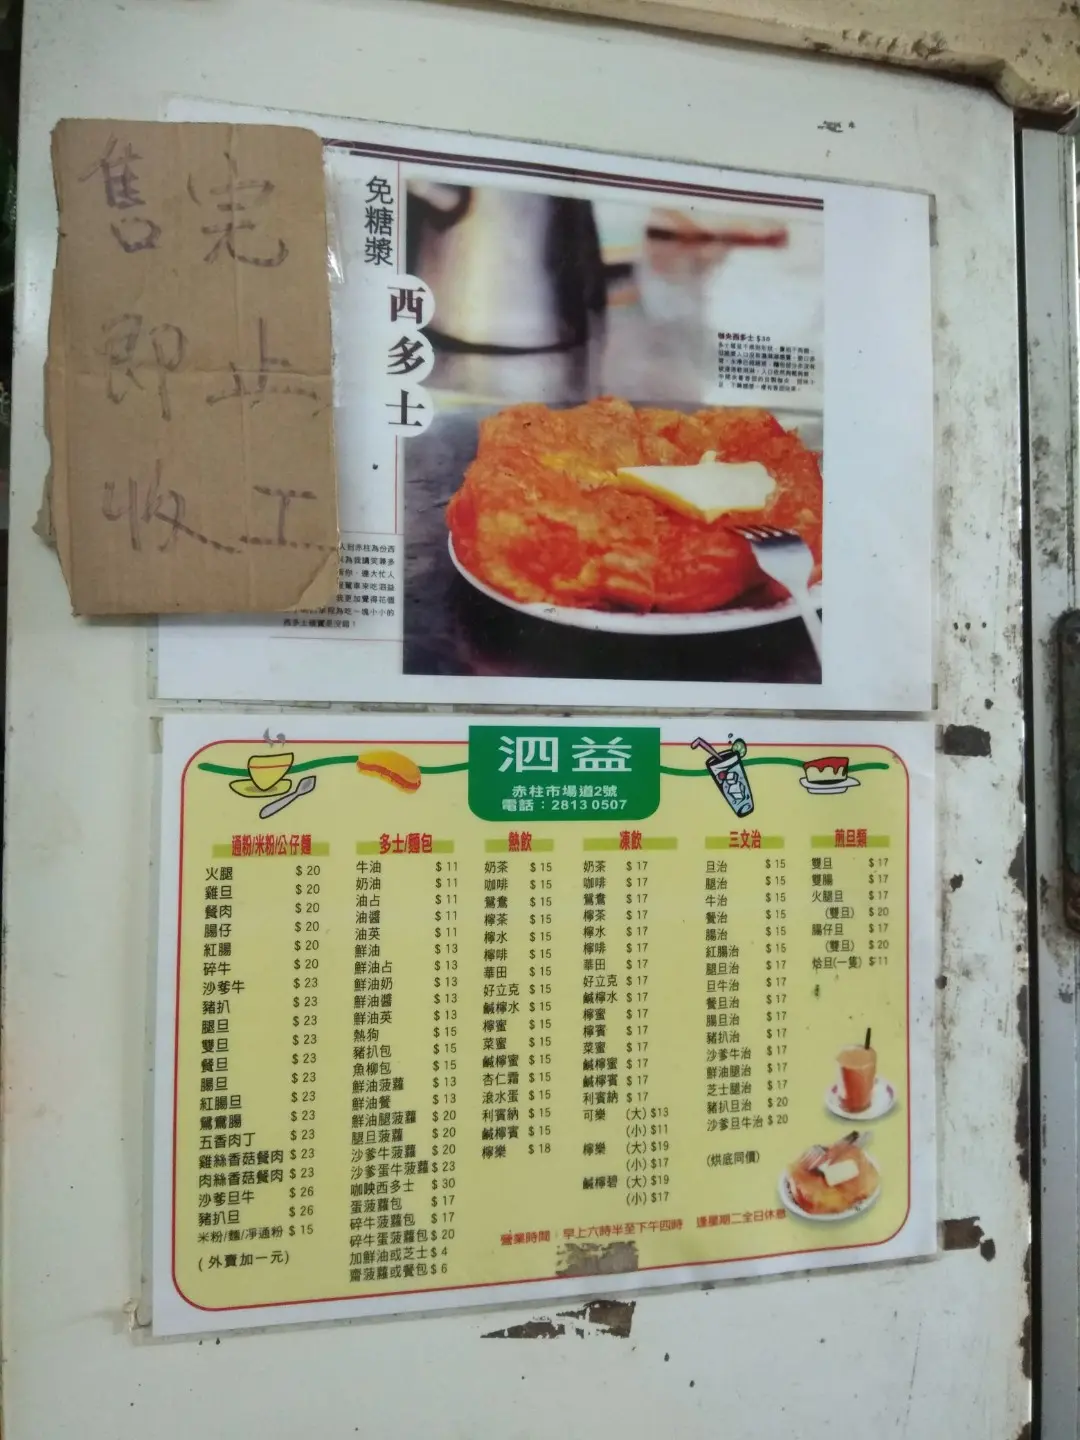 售完
即止
收工
免糖漿
西多士
咖央西多士 $30
人到赤柱為份西
西多士確實是沒錯！
泗益
赤柱市場道2號
電話：2813 0507
通粉/米粉/公仔麵
火腿 $20
雞旦 $20
餐肉 $20
腸仔 $20
紅腸 $20
碎牛 $20
沙爹牛 $23
豬扒 $23
腿旦 $23
雙旦 $23
餐旦 $23
腸旦 $23
紅腸旦 $23
鴛鴦腸 $23
五香肉丁 $23
雞絲香菇餐肉 $23
肉絲香菇餐肉 $23
沙爹旦牛 $26
豬扒旦 $26
米粉/麵/淨通粉 $15
(外賣加一元)
多士/麵包
牛油 $11
奶油 $11
油占 $11
油醬 $11
油英 $11
鮮油 $13
鮮油占 $13
鮮油奶 $13
鮮油醬 $13
鮮油英 $13
熱狗 $15
豬扒包 $15
魚柳包 $15
鮮油菠蘿 $13
鮮油餐 $13
鮮油腿菠蘿 $20
腿旦菠蘿 $20
沙爹牛菠蘿 $20
沙爹蛋牛菠蘿 $23
咖央西多士 $30
蛋菠蘿包 $17
碎牛菠蘿包 $17
碎牛蛋菠蘿包 $20
加鮮油或芝士 $4
齋菠蘿或餐包 $6
熱飲
奶茶 $15
咖啡 $15
鴛鴦 $15
檸茶 $15
檸水 $15
檸啡 $15
華田 $15
好立克 $15
鹹檸水 $15
檸蜜 $15
菜蜜 $15
鹹檸蜜 $15
杏仁霜 $15
滾水蛋 $15
利賓納 $15
鹹檸賓 $15
檸樂 $18
凍飲
奶茶 $17
咖啡 $17
鴛鴦 $17
檸茶 $17
檸水 $17
檸啡 $17
華田 $17
好立克 $17
鹹檸水 $17
檸蜜 $17
檸賓 $17
菜蜜 $17
鹹檸蜜 $17
鹹檸賓 $17
利賓納 $17
可樂 (大) $13
(小) $11
檸樂 (大) $19
(小) $17
鹹檸碧 (大) $19
(小) $17
三文治
旦治 $15
腿治 $15
牛治 $15
餐治 $15
腸治 $15
紅腸治 $15
腿旦治 $17
旦牛治 $17
餐旦治 $17
腸旦治 $17
豬扒治 $17
沙爹牛治 $17
鮮油腿治 $17
芝士腿治 $17
豬扒旦治 $20
沙爹旦牛治 $20
(烘底同價)
煎旦類
雙旦 $17
雙腸 $17
火腿旦 $17
(雙旦) $20
腸仔旦 $17
(雙旦) $20
烚旦(一隻) $11
營業時間：早上六時半至下午四時 逢星期二全日休息